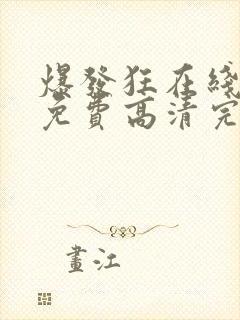 爆發狂在綫
免費高清完
畫江